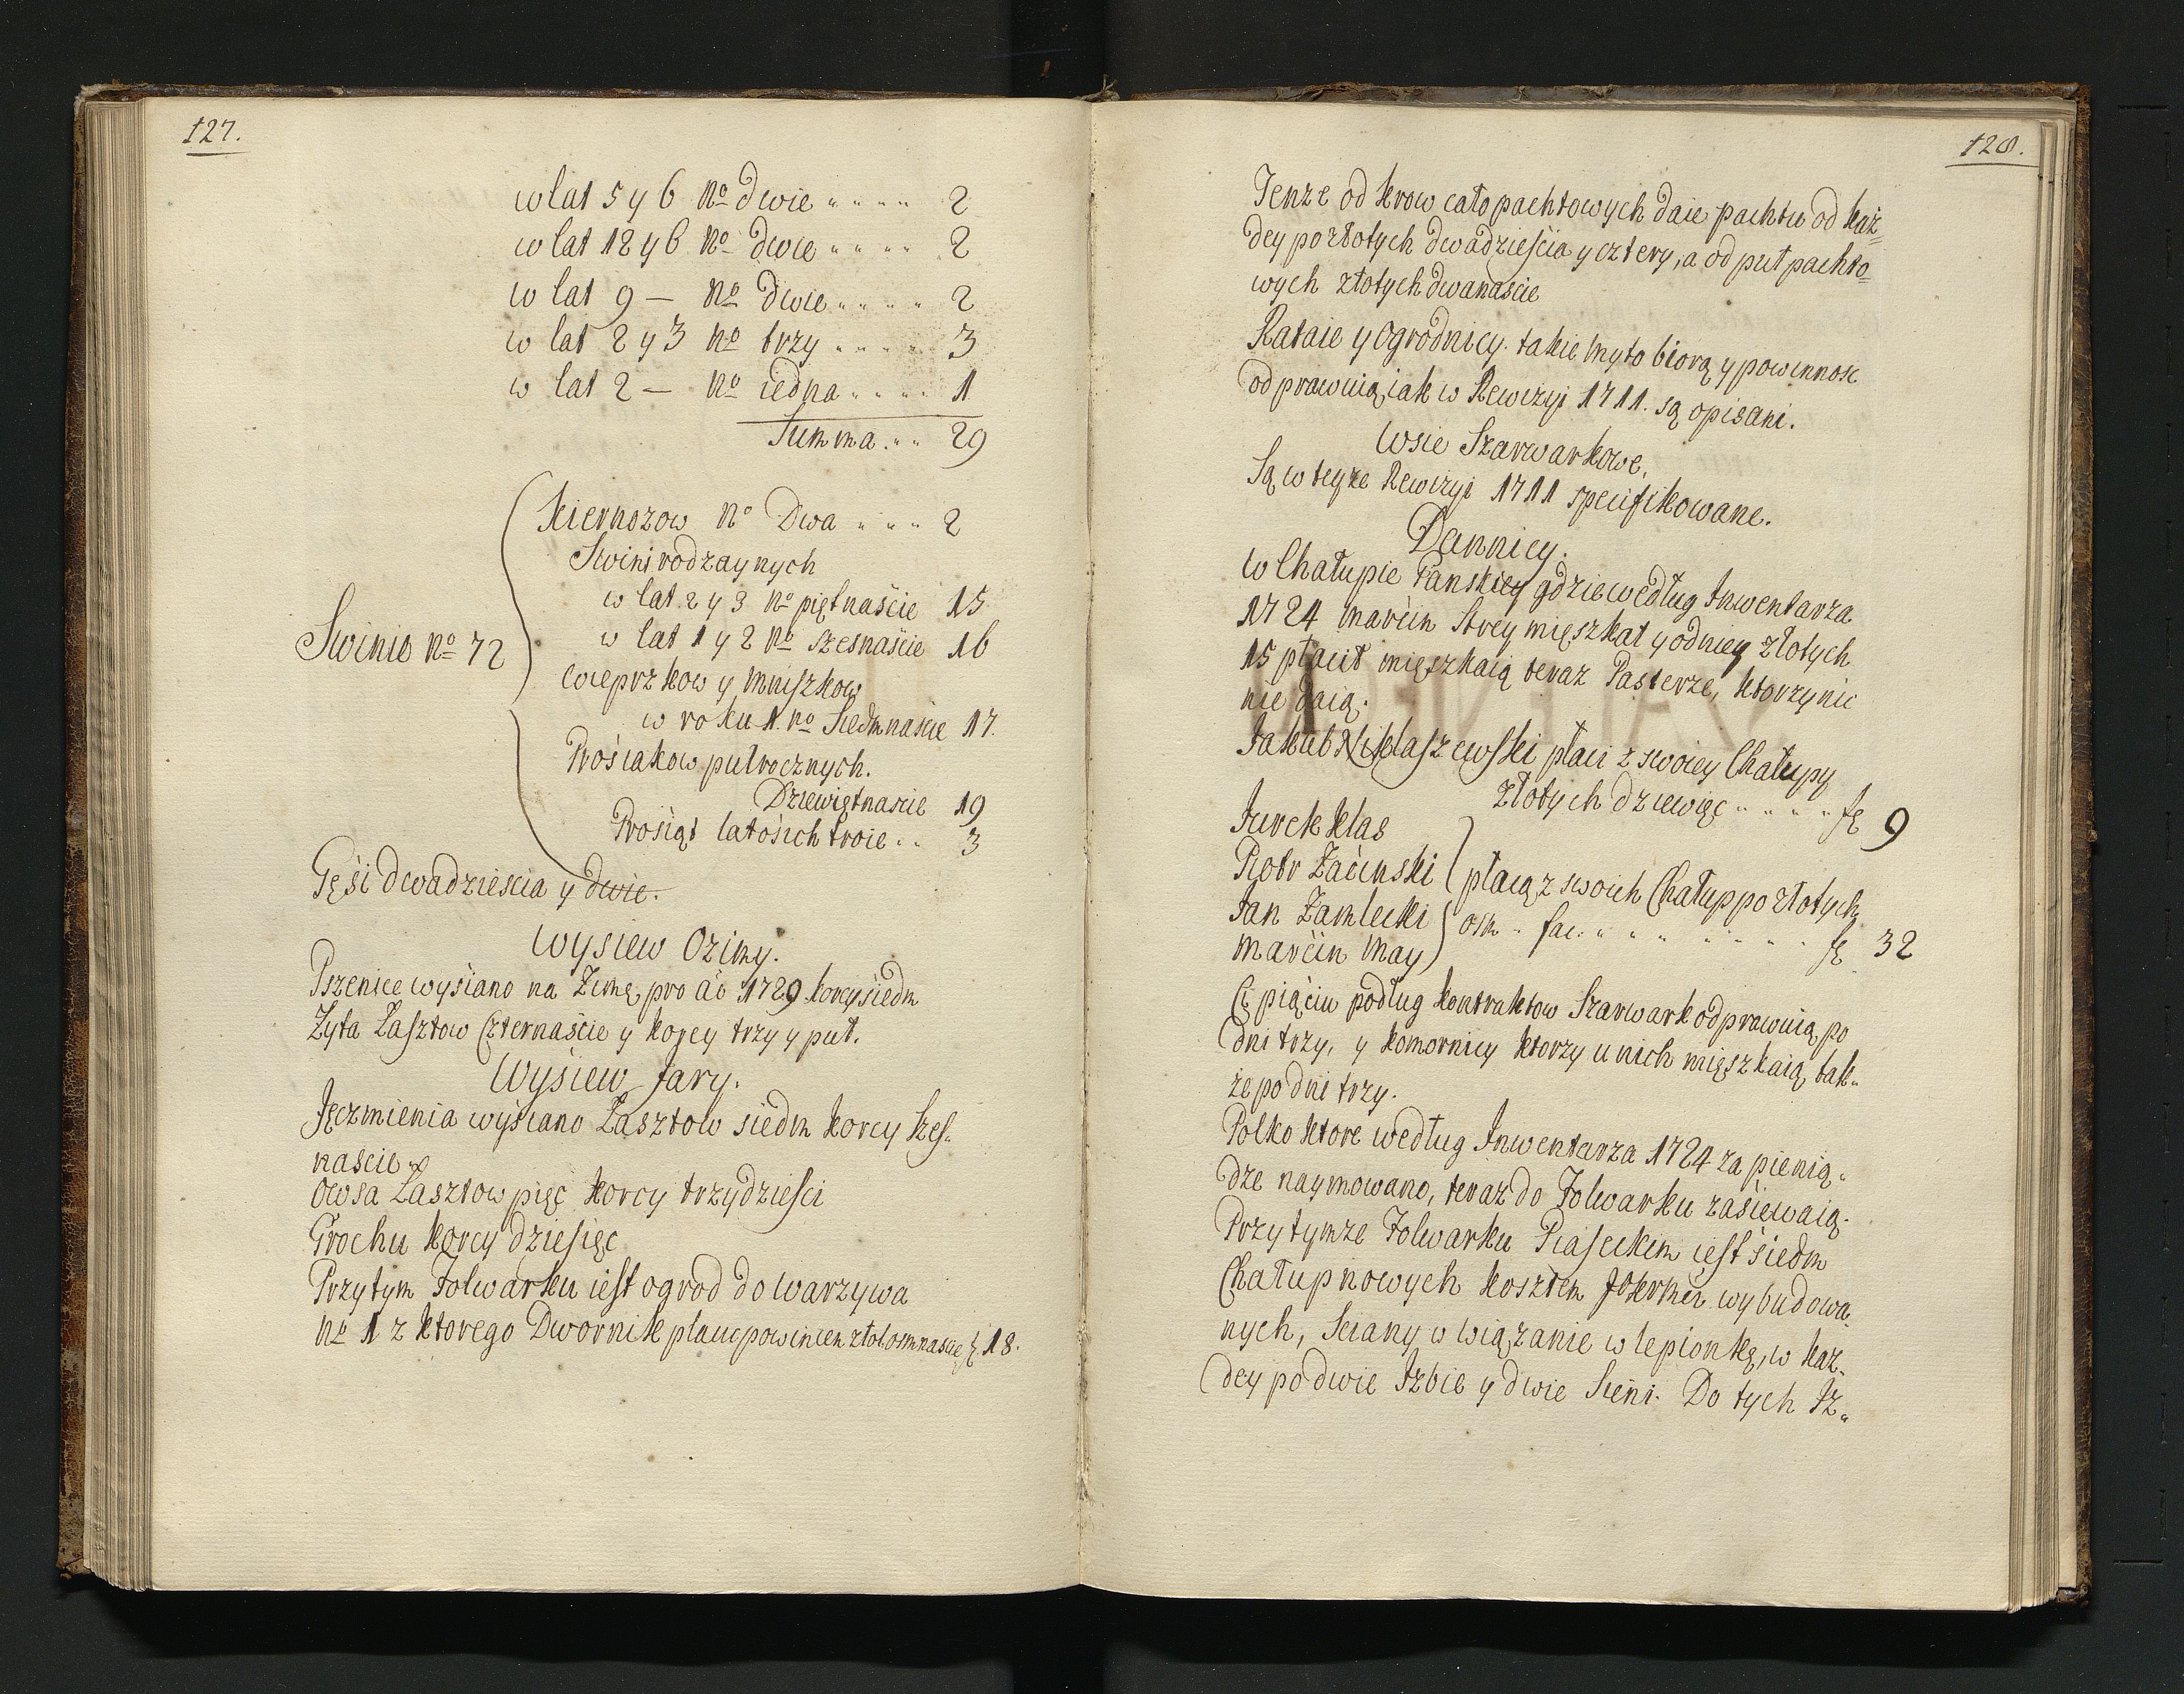 127.
w lat 5 y 6 No dwie 2
w lat 18 y 6 No dwie 2
w lat 9 — No dwie 2
w lat 2 y 3 No trzy 3
w lat 2 — No iedna 1
Summa 29
Kiernozow No Dwa 2
Swini rodzaynych
w lat 2 y 3 No piętnaście 15
Swinie No 72
w lat 1 y 2 No szesnaście 16
Wieprzkow y Mniszkow
w roku 1. No Siedmnaście 17.
Prosiakow pułrocznych.
Dziewiętnaście 19
Prosiąt latosich troie 3
Gęsi dwadzieścia y dwie.
Wysiew Ozimy.
Pszenice wysiano na Zimę, pro ao 1729 korcy siedm
Zyta Łasztow Czternaście y korcy trzy y puł.
Wysiew Jary.
Jęczmienia wysiano Łasztow siedm korcy Szes-
naście
Owsa Łasztow pięć korcy trzydzieści
Grochu korcy dziesięć
Przy tym Folwarku iest ogrod do warzywa
No 1 z ktorego Dwornik płacić powinien złot. osmnaście f. 18.
128.
Tenze od krow cało pachtowych daie pachtu od każ-
dey po złotych dwadzieścia y cztery, a od puł pachto-
wych złotych dwanaście
Rataie y Ogrodnicy takie Myto biorą y powinnosc
odprawuią, iak w Rewizyi 1711. są opisani.
Wsie Szarwarkowe.
Są w teyze Rewizyi 1711 specifikowane.
Dannicy.
W Chałupie Panskiey gdzie według Inwentarza
1724 Marcin Strey mięszkał y od niey złotych
15 płacił mięszkaią teraz Pasterze, ktorzy nic
nie daią.
Jakub Niklaszewski płaci z swoiey Chałupy
złotych dziewięc f 9
Jurek Klas
Piotr Zacinski
płacą z swoich Chałup po złotych
Jan Zamlecki
osm fac: f 32
Marcin May
Ci pięciu podług kontraktow Szarwark odprawuią po
dni trzy, y komornicy ktorzy u nich mięszkaią, tak-
że po dni trzy.
Polko ktore według Inwentarza 1724 za pienią-
dze naymowano, teraz do Folwarku zasiewaią.
Przy tymze Folwarku Piaseckim iest siedm
Chałup nowych kosztem wybudowa-
nych, Sciany w wiązanie w lepionkę, w każ-
dey po dwie Izbie y dwie Sieni. Do tych Iz-